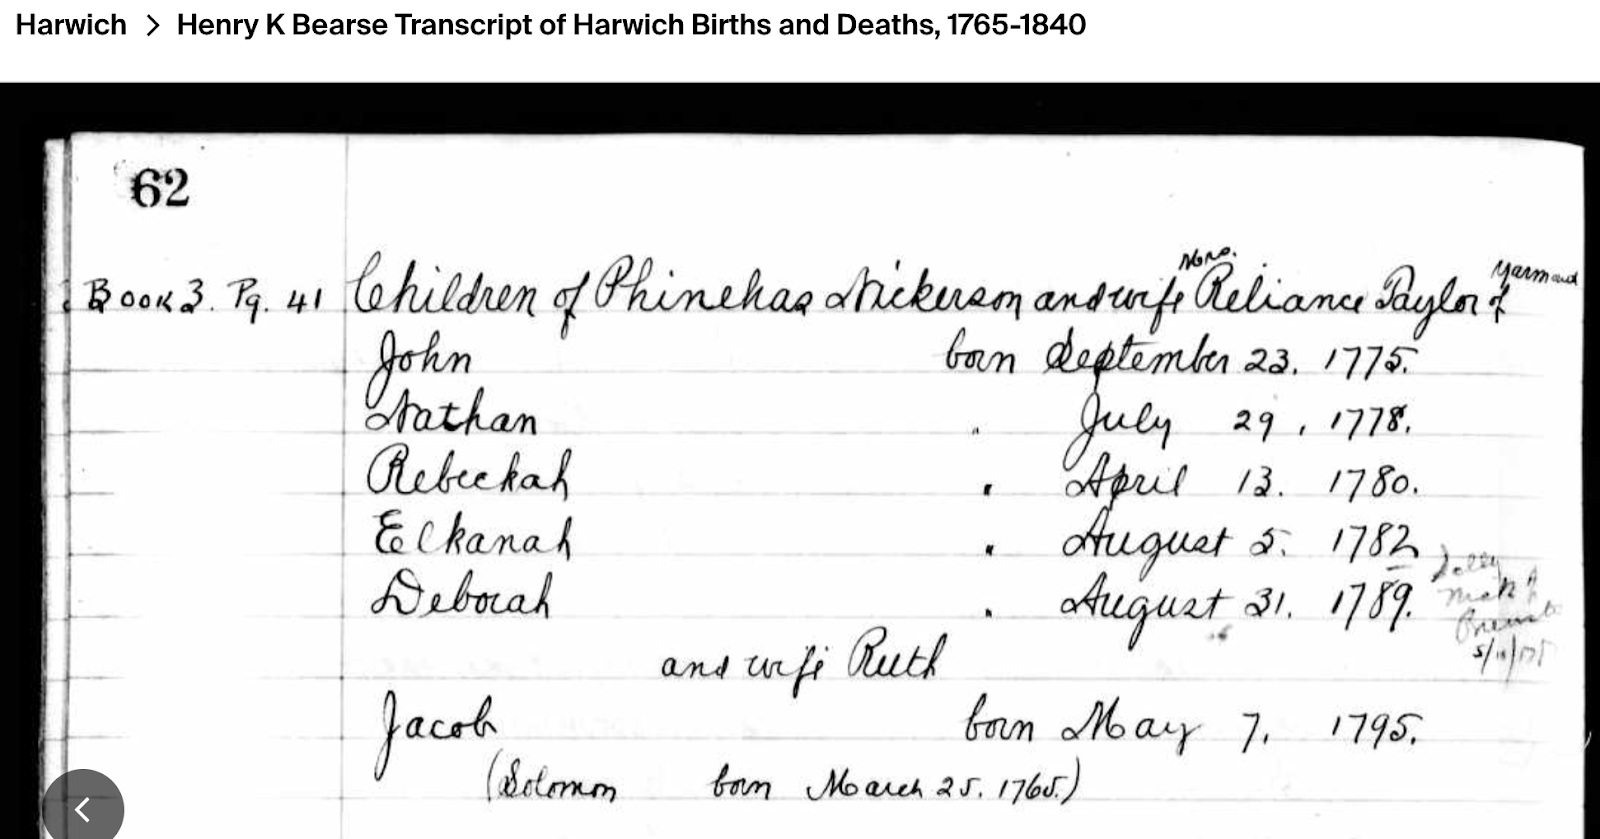 Harwich > Henry K Bearse Transcript of Harwich Births and Deaths, 1765-1840
62
Book 3. Pg. 41 Children of Phinehas Nickerson and wife Mrs. Reliance Taylor of
John born September 23. 1775.
Nathan " July 29, 1778.
Rebeckah " April 13. 1780.
Elkanah " August 5. 1782
Deborah " August 31. 1789.
and wife Ruth
Jacob born May 7. 1795.
(Solomon born March 25. 1765.)